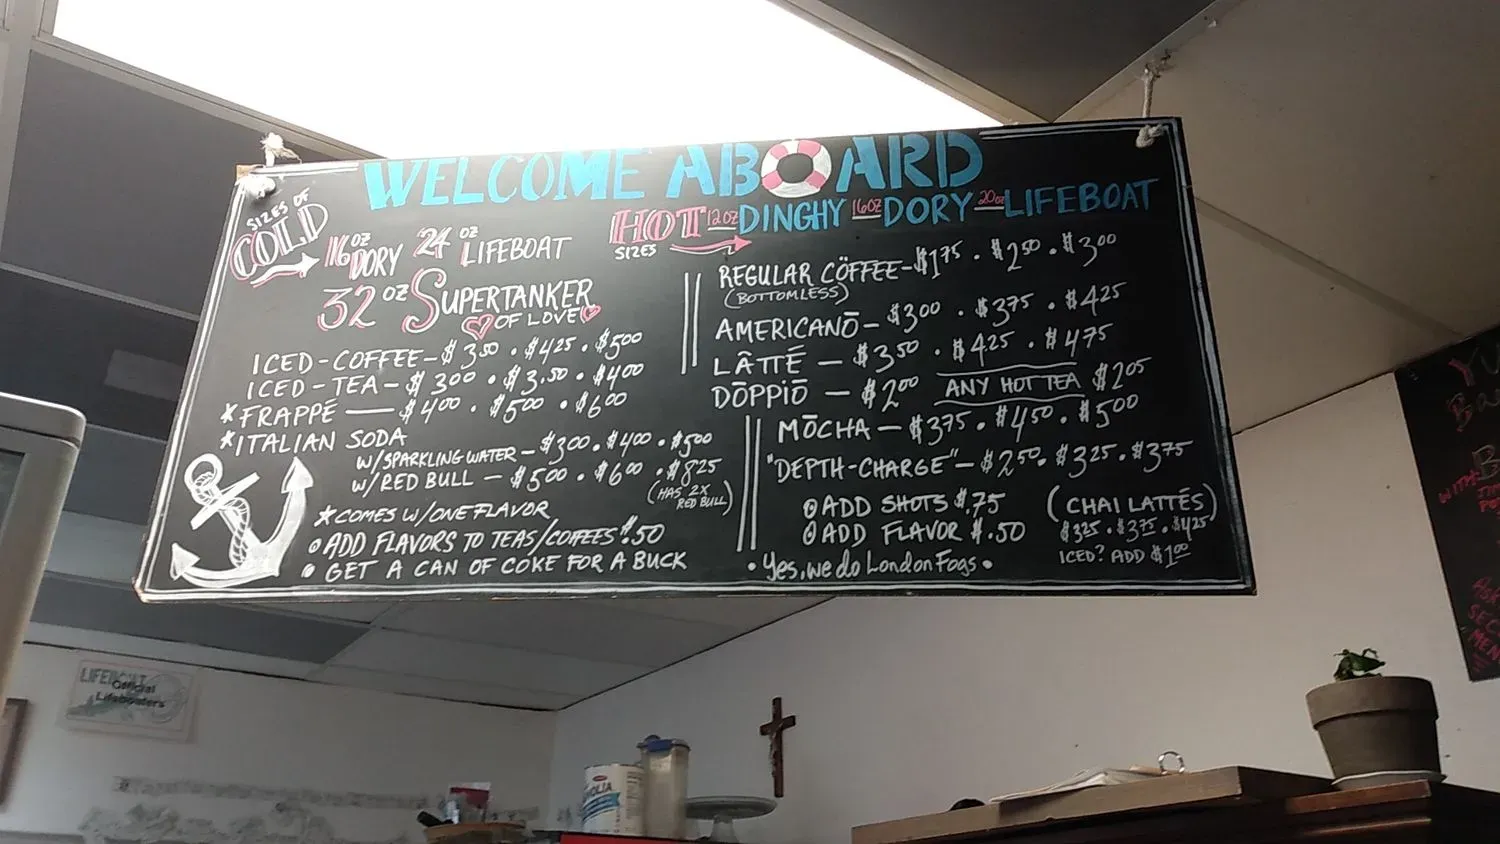 WELCOME ABOARD
SIZES OF
COLD
16 OZ DORY 24 OZ LIFEBOAT
32 OZ SUPERTANKER
OF LOVE
ICED-COFFEE-$3.50 • $4.25 • $5.00
ICED-TEA-$3.00 • $3.50 • $4.00
*FRAPPÉ — $4.00 • $5.00 • $6.00
*ITALIAN SODA
W/SPARKLING WATER - $3.00 • $4.00 • $5.00
W/RED BULL - $5.00 • $6.00 • $8.25
(HAS 2X
RED BULL)
*COMES W/ONE FLAVOR
• ADD FLAVORS TO TEAS/COFFEES $.50
• GET A CAN OF COKE FOR A BUCK
HOT 12OZ DINGHY 16OZ DORY 20OZ LIFEBOAT
SIZES
REGULAR CÖFFEE-$1.75 • $2.50 • $3.00
(BOTTOMLESS)
AMERICANŌ-$3.00 • $3.75 • $4.25
LÂTTÉ — $3.50 • $4.25 • $4.75
DŌPPIŌ — $2.00 ANY HOT TEA $2.05
MŌCHA — $3.75 • $4.50 • $5.00
"DEPTH-CHARGE" - $2.50 • $3.25 • $3.75
ADD SHOTS $.75
ADD FLAVOR $.50
(CHAI LATTÉS)
$3.25 • $3.75 • $4.25
ICED? ADD $1.00
• Yes, we do London Fogs •
LIFEBOAT
Official
Lifeboaters